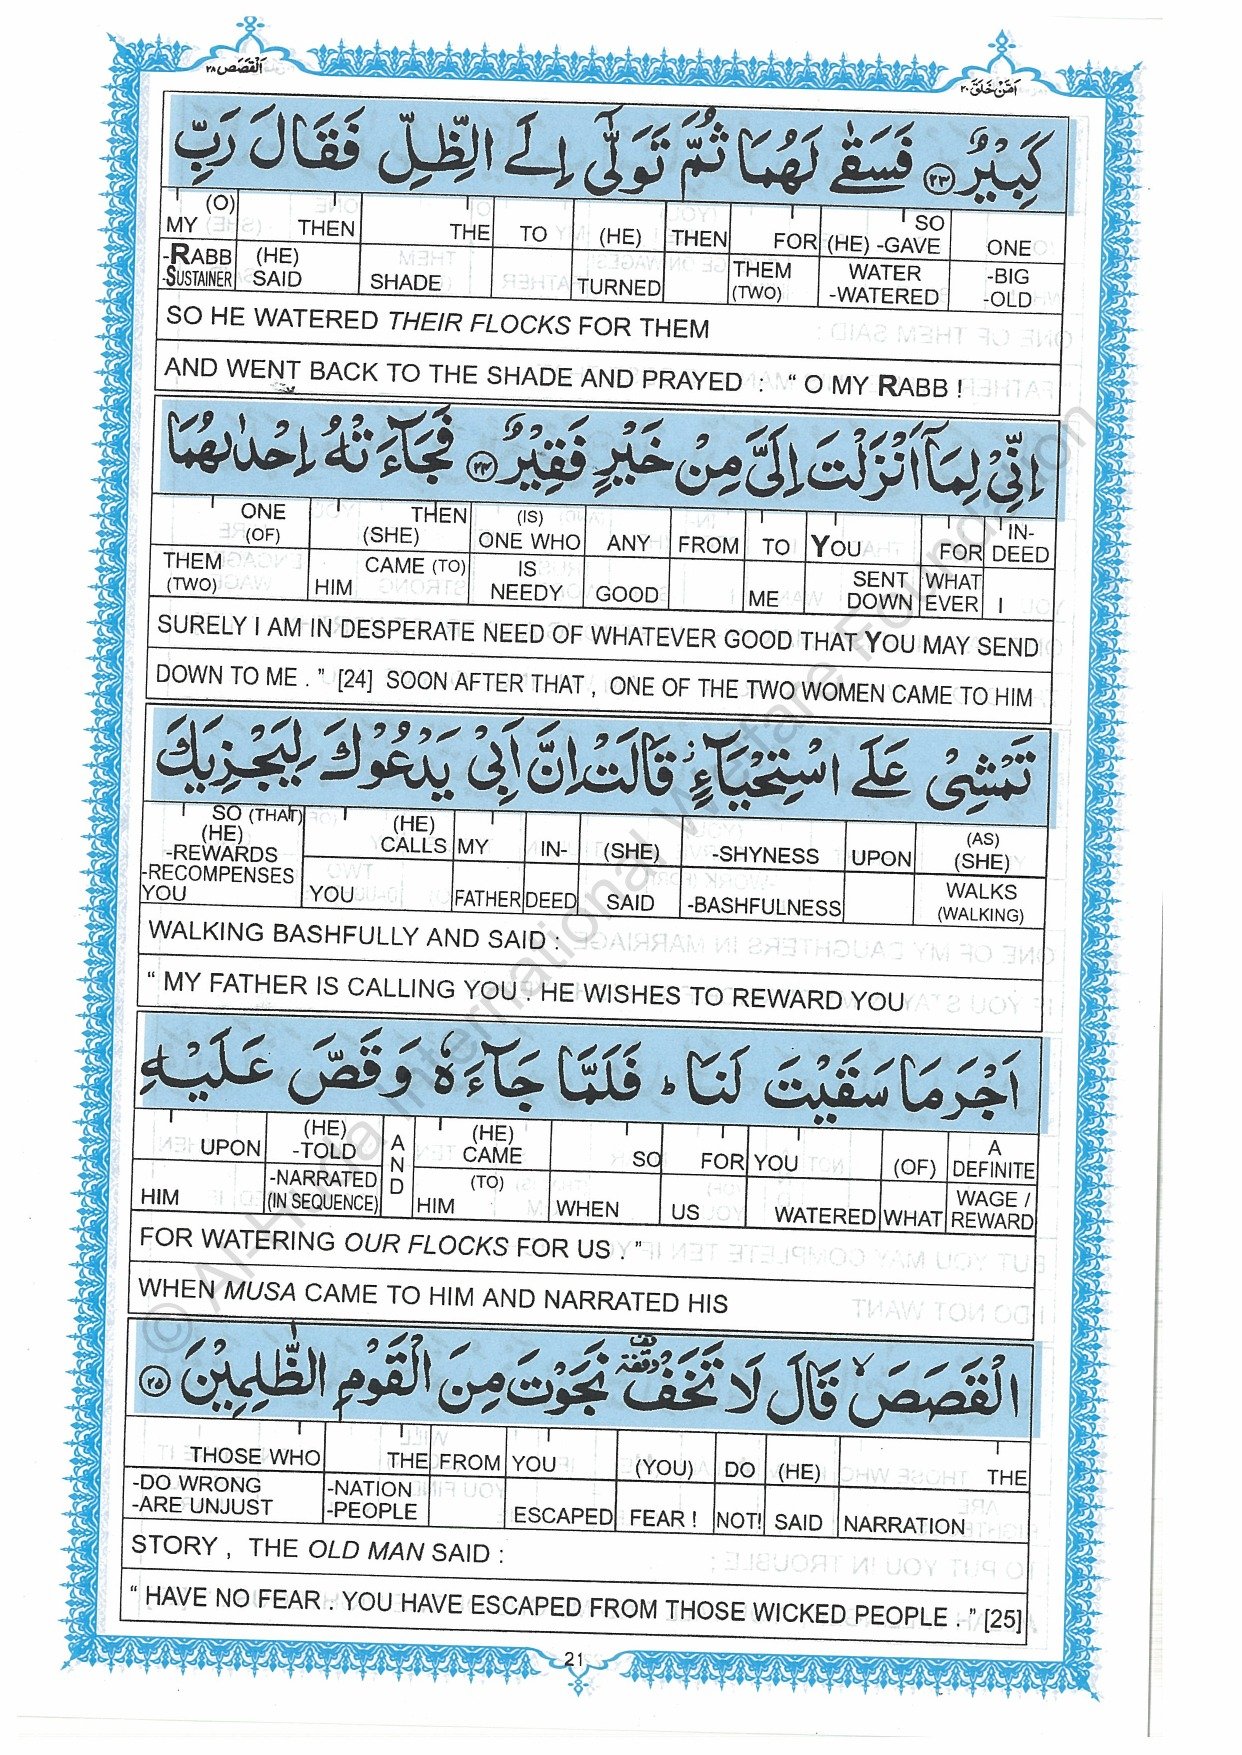 القصص ٢٨
امن خلق ٢٠
كَبِيْرٌ ﴿٢٣﴾ فَسَقٰى لَهُمَا ثُمَّ تَوَلّٰٓى اِلَى الظِّلِّ فَقَالَ رَبِّ
(O) MY THEN THE TO (HE) THEN FOR (HE) SO -GAVE ONE
-RABB -SUSTAINER (HE) SAID SHADE TURNED THEM (TWO) WATER -WATERED -BIG -OLD
SO HE WATERED THEIR FLOCKS FOR THEM
AND WENT BACK TO THE SHADE AND PRAYED : “ O MY RABB !
اِنِّيْ لِمَاۤ اَنْزَلْتَ اِلَيَّ مِنْ خَيْرٍ فَقِيْرٌ ﴿٢٤﴾ فَجَآءَتْهُ اِحْدٰىهُمَا
ONE (OF) THEN (SHE) (IS) ONE WHO ANY FROM TO YOU FOR IN-DEED
THEM (TWO) CAME (TO) HIM IS NEEDY GOOD ME SENT DOWN WHAT EVER I
SURELY I AM IN DESPERATE NEED OF WHATEVER GOOD THAT YOU MAY SEND
DOWN TO ME . ” [24] SOON AFTER THAT , ONE OF THE TWO WOMEN CAME TO HIM
تَمْشِيْ عَلَى اسْتِحْيَآءٍ ؗ قَالَتْ اِنَّ اَبِيْ يَدْعُوْكَ لِيَجْزِيَكَ
SO (THAT) (HE) -REWARDS (HE) CALLS MY IN- (SHE) -SHYNESS UPON (AS) (SHE)
-RECOMPENSES YOU YOU FATHER DEED SAID -BASHFULNESS WALKS (WALKING)
WALKING BASHFULLY AND SAID :
“ MY FATHER IS CALLING YOU . HE WISHES TO REWARD YOU
اَجْرَ مَا سَقَيْتَ لَنَا ؕ فَلَمَّا جَآءَهٗ وَقَصَّ عَلَيْهِ
UPON (HE) -TOLD AND (HE) CAME SO FOR YOU (OF) A DEFINITE
HIM -NARRATED (IN SEQUENCE) (TO) HIM WHEN US WATERED WHAT WAGE / REWARD
FOR WATERING OUR FLOCKS FOR US . ”
WHEN MUSA CAME TO HIM AND NARRATED HIS
الْقَصَصَ ۙ قَالَ لَا تَخَفْ ۥوقفة نَجَوْتَ مِنَ الْقَوْمِ الظّٰلِمِيْنَ ﴿٢٥﴾
THOSE WHO THE FROM YOU (YOU) DO (HE) THE
-DO WRONG -ARE UNJUST -NATION -PEOPLE ESCAPED FEAR ! NOT! SAID NARRATION
STORY , THE OLD MAN SAID :
“ HAVE NO FEAR . YOU HAVE ESCAPED FROM THOSE WICKED PEOPLE . ” [25]
21
© Al-Huda International Welfare Foundation